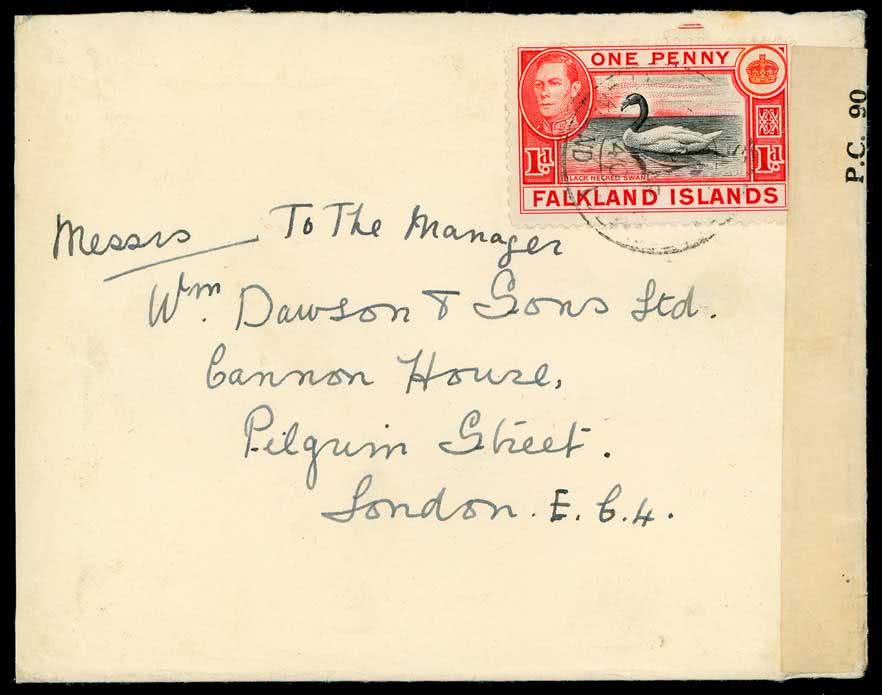 ONE PENNY
1d 1d
BLACK NECKED SWAN
FALKLAND ISLANDS
P.C. 90
Messrs To The Manager
Wm. Dawson & Sons Ltd.
Cannon House,
Pilgrim Street.
London. E.C.4.